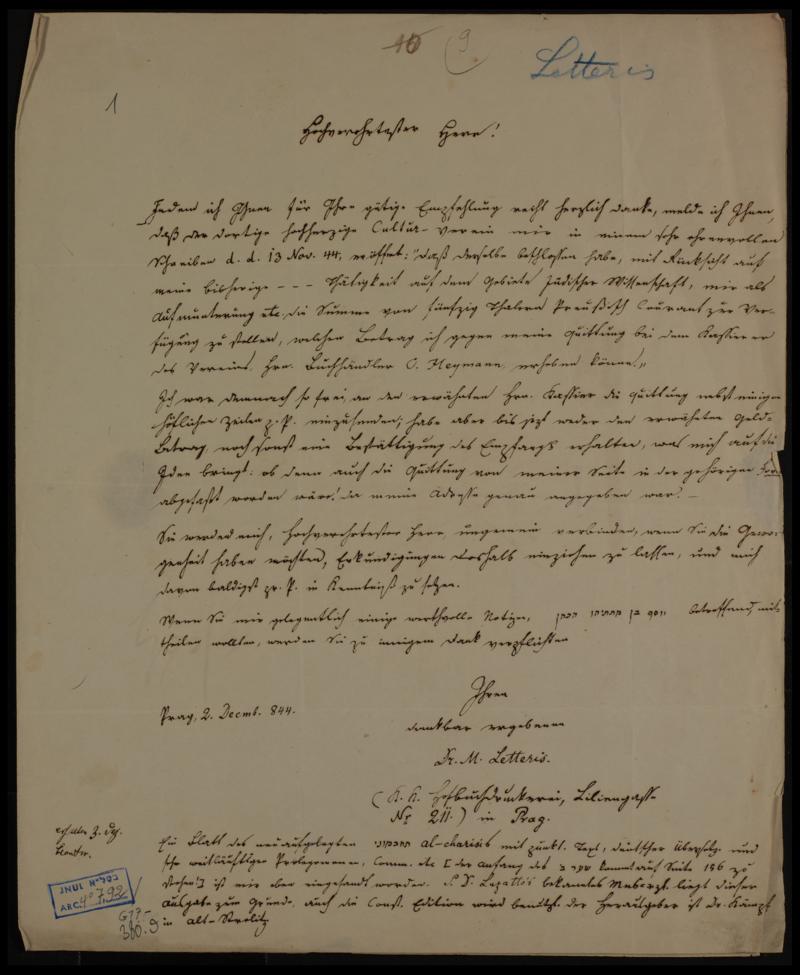 10 9.
Letteris
1
Hochverehrtester Herr!
Indem ich Ihnen für Ihre gütige Empfehlung recht herzlich danke, melde ich Ihnen,
daß der dortige hochherzige Cultur-Verein mir in einem sehr ehrenvollen
Schreiben d. d. 13 Nov. 44, eröffnet: "daß derselbe beschlossen habe, mit Rücksicht auf
meine bisherige - - - Thätigkeit auf dem Gebiete jüdischer Wissenschaft, mir als
Aufmunterung etc. die Summe von fünfzig Thalern Preußisch Courant zur Ver-
fügung zu stellen, welchen Betrag ich gegen meine Quittung bei dem Kassierer
des Vereins, Hrn. Buchhändler C. Heymann, erheben könne."
Ich war demnach so frei, an den erwähnten Hrn. Kassier die Quittung nebst einigen
höflichen Zeilen p. P. einzusenden; habe aber bis jetzt weder den erwähnten Geld-
betrag, noch sonst eine Bestättigung des Empfangs erhalten, was mich auf die
Idee bringt: ob denn auch die Quittung von meiner Seite in der gehörigen
abgefaßt worden wäre? da meine Adresse genau angegeben war. -
Sie werden mich, hochverehrtester Herr, ungemein verbinden, wenn Sie die Gewo-
genheit haben möchten, Erkundigungen deshalb einziehen zu lassen, und mich
davon baldigst pr. P. in Kenntniß zu setzen.
Wenn Sie mir gelegentlich einige werthvolle Notizen, יוסף בן מתתיהו הכהן betreffend, mit-
theilen wollten, werden Sie zu innigem Dank verpflichten
Ihren
Prag, 2. Decemb. 844.
dankbar ergebenen
Dr. M. Letteris.
(K. K. Hofbuchdruckerei, Liliengasse
Nr 211.) in Prag.
Ein Blatt des neuaufgelegten תחכמוני al-charisis mit punkt. Text, deutscher Übersetzg. und
sehr weitläuftigen Prolegomenen, Comm. etc [der Anfang des kommt auf Seite 156 zu
stehen] ist mir eben eingesandt worden. S. D. Luzattos bekanntes Manuscpt. liegt dieser
Ausgabe zum Grunde, auch die Const. Edition wird benützt. der Herausgeber ist Dr. Kämpf
in Alt-Strelitz
erhalten 3. Dez.
JNUL
ARC. 4° 792
G77-
380.9